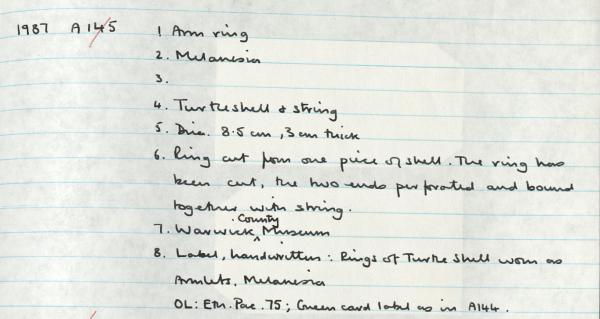 1987 A145 1 Arm ring
2. Melanesia
3.
4. Turtleshell & string
5. Dia. 8.5 cm, 3 cm thick
6. Ring cut from one piece of shell. The ring has
been cut, the two ends perforated and bound
together with string.
7. Warwick County Museum
8. Label, handwritten: Rings of Turtle Shell worn as
Armlets, Melanesia
OL: Eth. Pac. 75; Green card label as in A144.